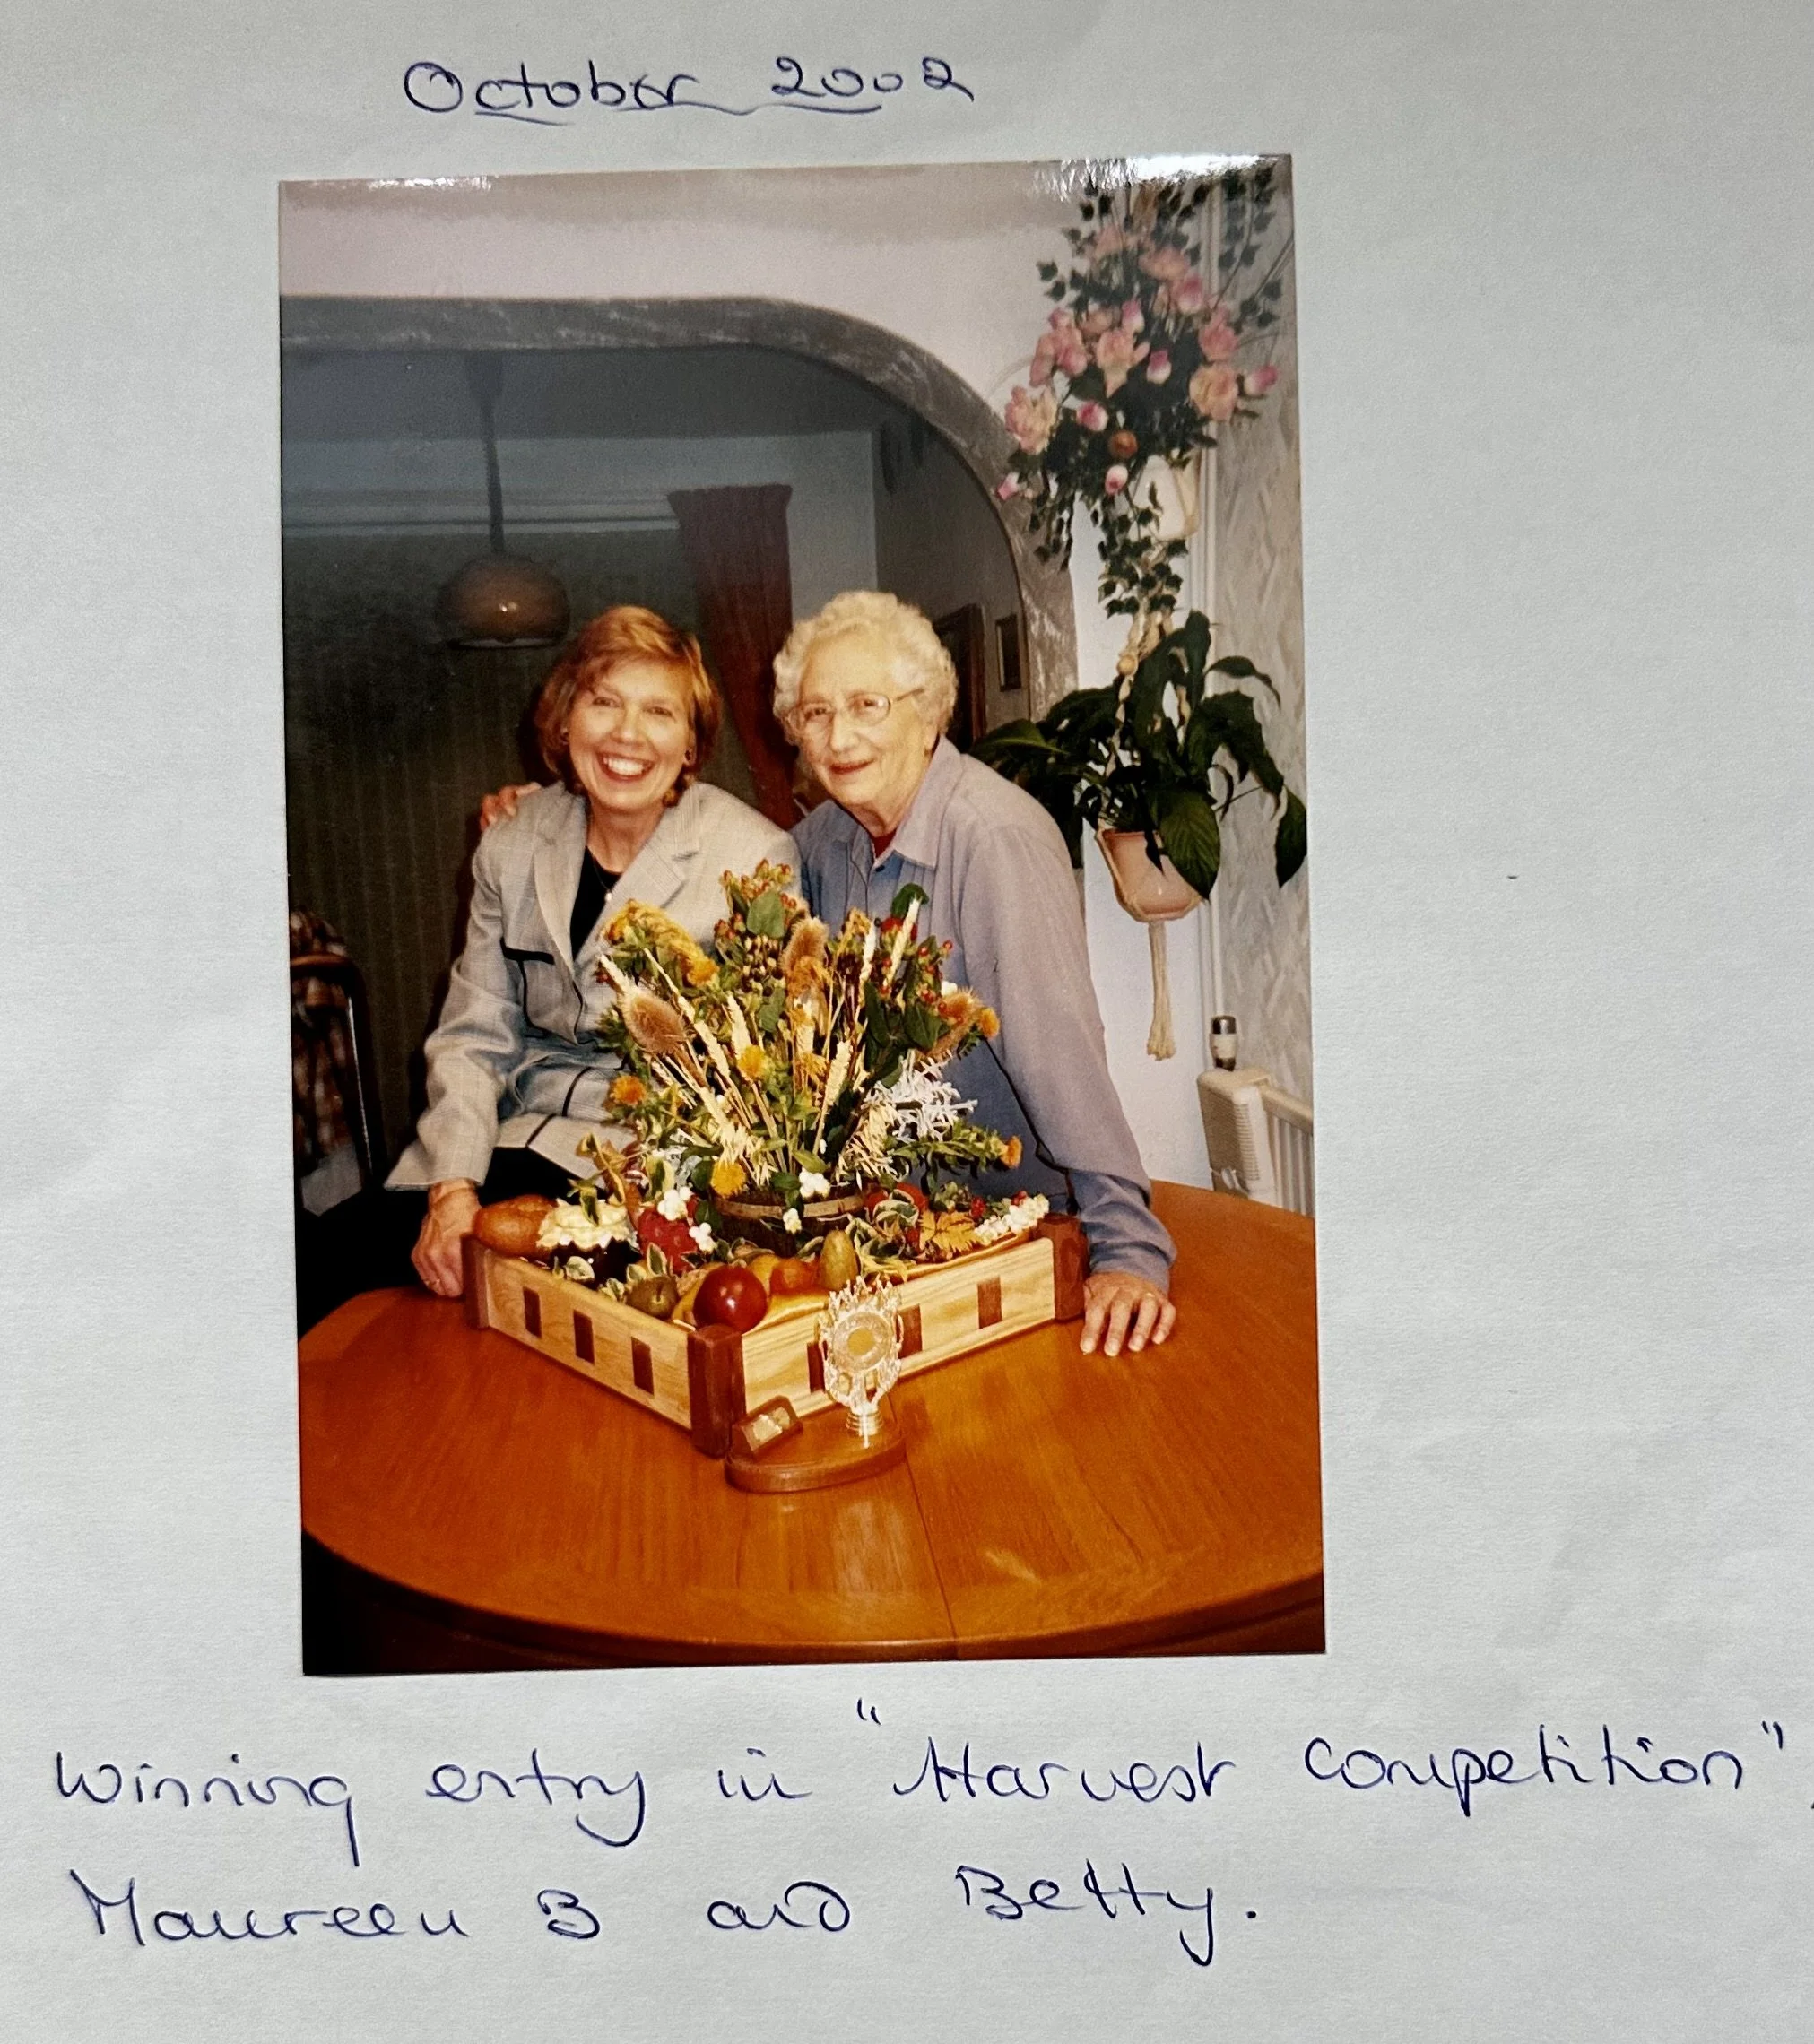 October 2002
Winning entry in "Harvest Competition",
Maureen B and Betty.